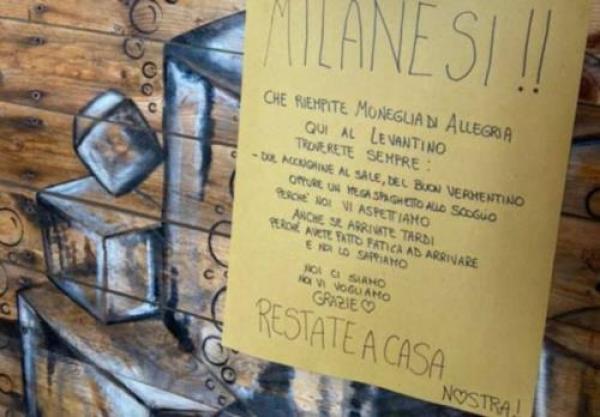 MILANESI!!
CHE RIEMPITE MONEGLIA DI ALLEGRIA
QUI AL LEVANTINO
TROVERETE SEMPRE:
- DUE ACCIUGHINE AL SALE, DEL BUON VERMENTINO
OPPURE UN MEGA SPAGHETTO ALLO SCOGLIO
PERCHE' NOI VI ASPETTIAMO
ANCHE SE ARRIVATE TARDI
PERCHE' AVETE FATTO FATICA AD ARRIVARE
E NOI LO SAPPIAMO
NOI CI SIAMO
NOI VI VOGLIAMO
GRAZIE♡
RESTATE A CASA
NOSTRA!